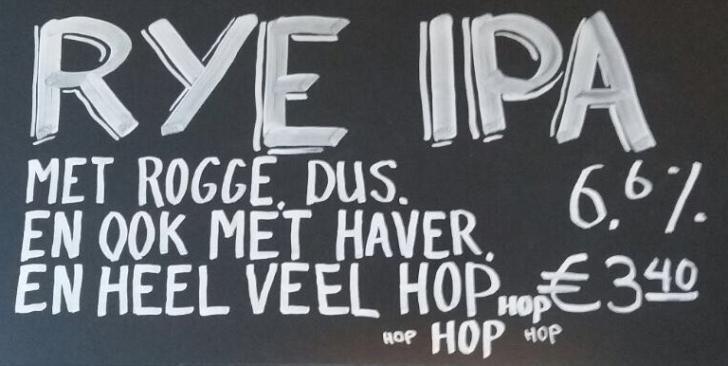 RYE IPA
MET ROGGE. DUS. 6.6%
EN OOK MET HAVER.
EN HEEL VEEL HOP HOP €3 40
HOP HOP HOP